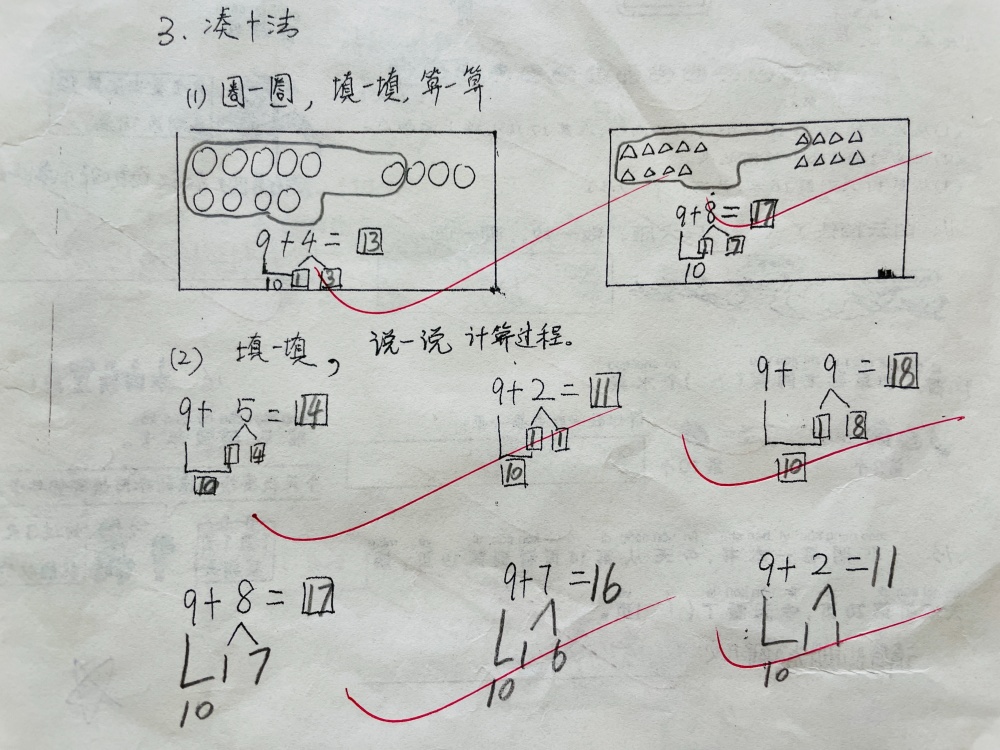 3. 凑十法
(1) 圈一圈, 填一填, 算一算
9+4= 13
10 1 3
9+8= 17
1 7
10
(2) 填一填, 说一说 计算过程。
9+ 5 = 14
1 4
10
9+2=11
1 1
10
9+ 9 =18
1 8
10
9+ 8 = 17
1 7
10
9+7 =16
1 6
10
9+ 2 =11
1 1
10